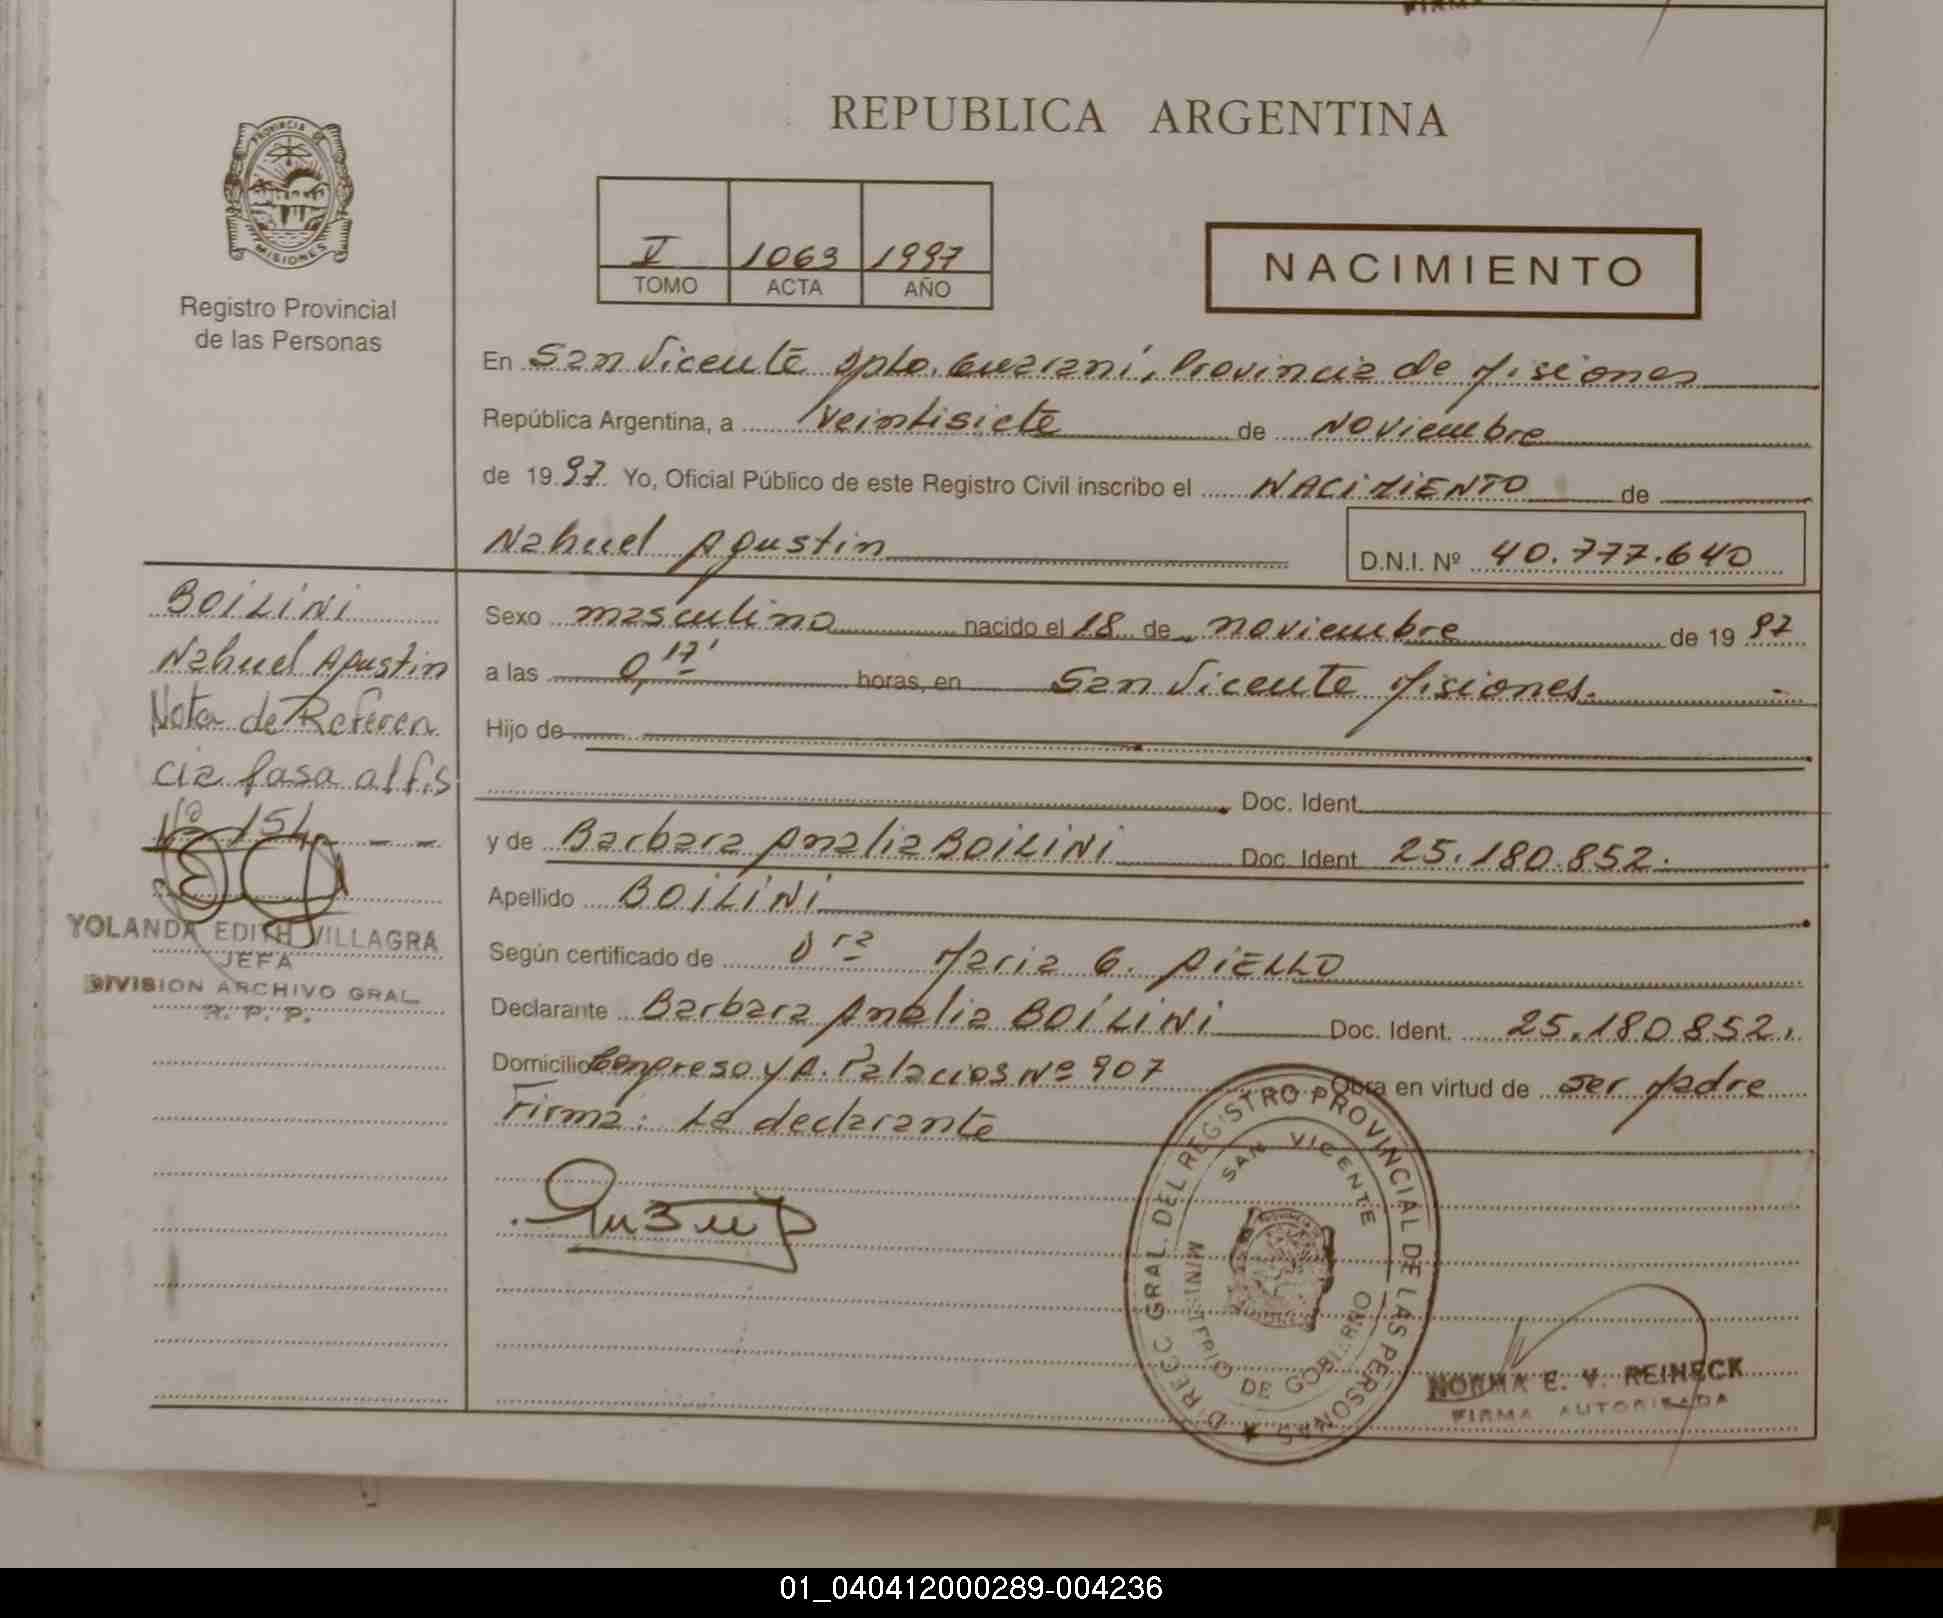 FIRMA
REPUBLICA ARGENTINA
PROVINCIA DE
MISIONES
Registro Provincial
de las Personas
V 1063 1997
TOMO ACTA AÑO
NACIMIENTO
En San Vicente Dpto. Guaraní, Provincia de Misiones
República Argentina, a veintisiete de Noviembre
de 1997 Yo, Oficial Público de este Registro Civil inscribo el NACIMIENTO de
Nahuel Agustin D.N.I. Nº 40.777.640
BOILINI
Nahuel Agustin
Nota de Referen
cia pasa al fis
Nº 154
YOLANDA EDITH VILLAGRA
JEFA
DIVISION ARCHIVO GRAL
R. P. P.
Sexo masculino nacido el 18 de noviembre de 1997
a las 0,17' horas, en San Vicente Misiones.
Hijo de
Doc. Ident.
y de Barbara Analia BOILINI Doc. Ident. 25.180.852.
Apellido BOILINI
Según certificado de Dra Maria G. AIELLO
Declarante Barbara Analia BOILINI Doc. Ident. 25.180852.
Domicilio Congreso y A. Palacios Nº 907 Obra en virtud de ser Madre
Firma: La declarante
DIRECC GRAL. DEL REGISTRO PROVINCIAL DE LAS PERSONAS
SAN VICENTE
MINISTERIO DE GOBIERNO
NORMA E. V. REINECK
FIRMA AUTORIZADA
01_040412000289-004236